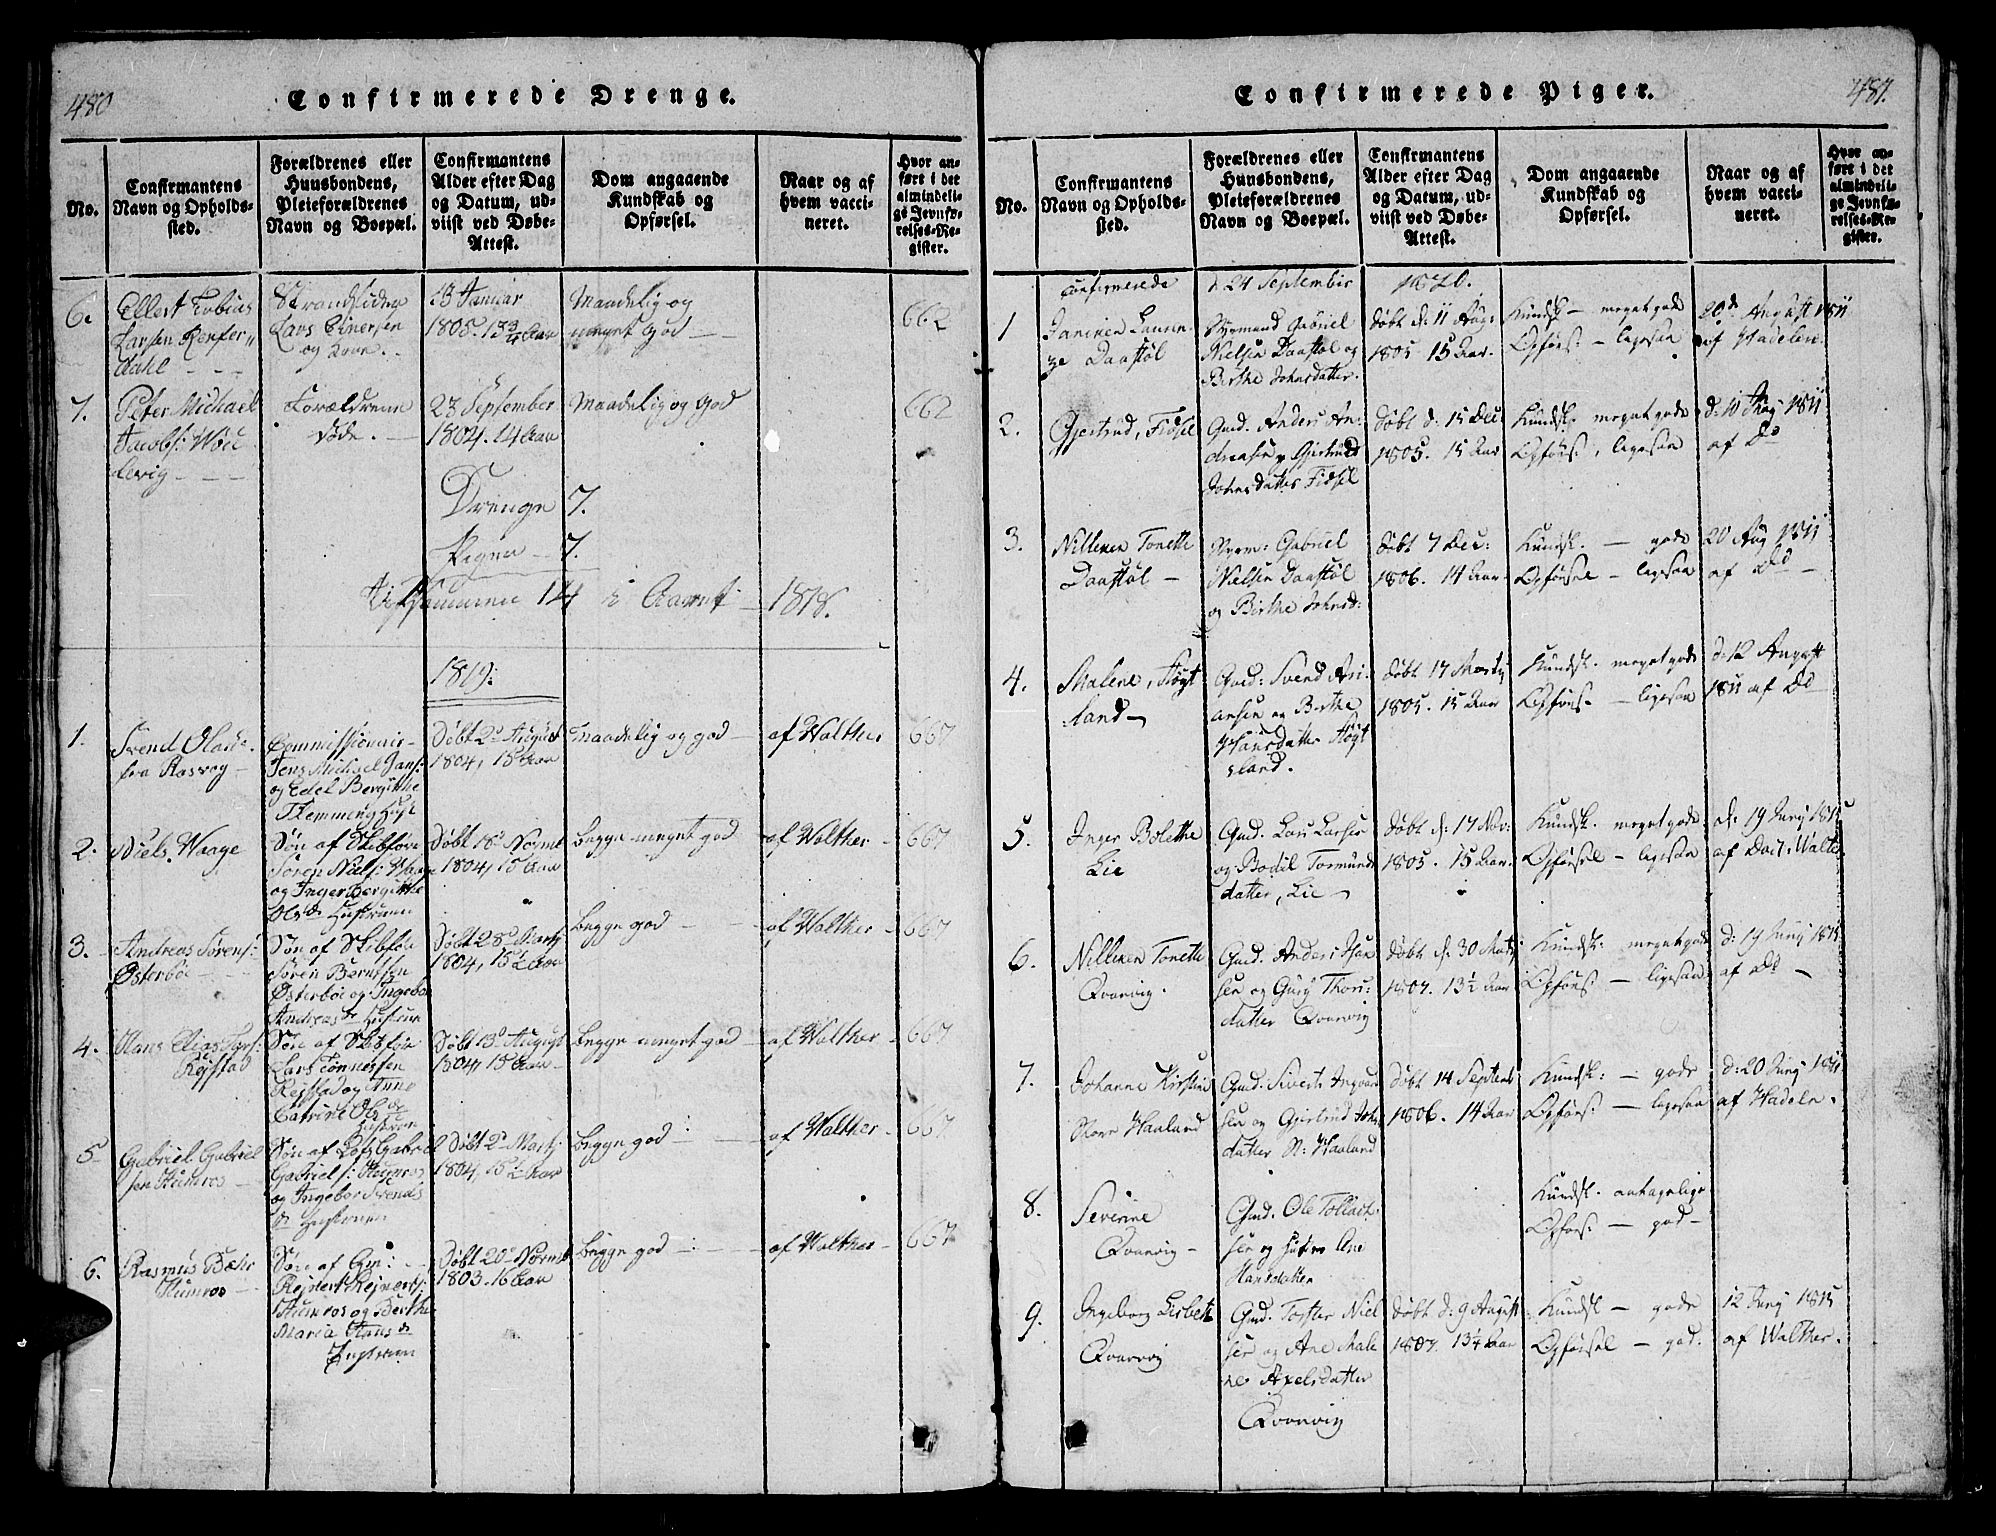 480
Confirmerede Drenge.
No.
Confirmantens
Navn og Opholds-
sted.
Forældrenes eller
Huusbondens,
Pleieforældrenes
Navn og Boepæl.
Confirmantens
Alder efter Dag
og Datum, ud-
viist ved Døbe-
Attest.
Dom angaaende
Kundskab og
Opførsel.
Naar og af
hvem vacci-
neret.
Hvor an-
ført i det
almindeli-
ge Jevnfø-
relses-Re-
gister.
6.
Ellert Tobias
Larsen
Lars Einersen
og Kone.
13 Januar
1805. 13 3/4 Aar
Maadelig og
meget god
662
7.
Peter Michael
Jacobs:
Forældrene
døde.
23 September
1804. 14 Aar
Maadelig og god
662
Drenge 7.
Pigen 7.
Tilsammen 14 i Aaret 1818.
1819.
1.
Svend Olai
fra Rasvog
Commissionair
Jens Michael Jans:
og Edel Bergitthe
Flemming Hust
Døbt 2d August
1804, 15 Aar
Maadelig og god
af Walther
667
2.
Niels Waage
Søn af Skibsføre
Søren Niels: Waage
og Inger Bergitthe
Ols d Hustruen
Døbt 18d Novmb
1804, 15 Aar
begge meget god
af Walther
667
3.
Andreas Sørens:
Østerbøe
Søn af Skibsføre
Søren Berntsen
Østerbøe og Ingebor
Andreas dr Hustrue
Døbt 28d Martj
1804, 15 1/2 Aar
begge god
af Walther
667
4.
Hans Elias Lars:
Rejstad
Søn af Skibsføre
Lars Tønnessen
Rejstad og Anne
Catrine Ols dr
Hustruen
Døbt 13d August
1804, 15 Aar
begge meget god
af Walther
667
5
Gabriel Gabriel
sen Kumros
Søn af Lods Gabriel
Gabriels: Kumros
og Ingebor Svends
dr Hustruen
Døbt 2d Martj
1804, 15 1/2 Aar
begge god
af Walther
667
6.
Rasmus Bæhr
Kumros
Søn af Gm:
Rejnert Rejnerts:
Kumros og Berthe
Maria Hans dr
Hustruen
Døbt 20d Novmb
1803. 16 Aar
begge god
af Walther
667
487.
Confirmerede Piger.
No.
Confirmantens
Navn og Opholds-
sted.
Forældrenes eller
Huusbondens,
Pleieforældrenes
Navn og Boepæl.
Confirmantens
Alder efter Dag
og Datum, ud-
viist ved Døbe-
Attest.
Dom angaaende
Kundskab og
Opførsel.
Naar og af
hvem vacci-
neret.
Hvor an-
ført i det
almindeli-
ge Jevnfø-
relses-Re-
gister.
confirmerede d 24 September 1820.
1
Janiken Lauren
ze Daatstøl
Styrmand Gabriel
Nielsen Daatstøl og
Birthe Johnsdatter.
døbt d: 11 Aug:
1805 15 Aar.
Kundsk – meget gode
Opførs: – ligesaa
20d August 1811
af Hadelen.
2.
Gjertrud, Fidsel
Gmd. Anders An
dreasen og Gjertrud
Johnsdatter Fidsel
døbt d: 15 Dec
1805. 15 Aar
Kundsk: meget gode
Opførs: ligesaa
af Do
3.
Nilleken Tonette
Daatstøl
Styrm: Gabriel
Nielsen Daatstøl
og Birthe Johnsd:
døbt 7 Dec:
1806. 14 Aar.
Kundsk. – gode
Opførsel – ligesaa
20 Aug 1811
af Do
4.
Malene, Høgt
land
Gmd: Svend Ari
ansen og Berthe
Hansdatter Høgt
sland.
døbt 17 Martj
1805. 15 Aar
Kundsk. meget gode
Opførs – ligesaa
d: 12 August
1811 af Do
5.
Inger Bolethe
Lie
Gmd. Lars Larsen
og Bodil Tormunds
datter, Lie
døbt d: 17 Nov:
1805. 15 Aar.
Kundsk. meget gode
Opførsel – ligesaa
d: 19 Junj 1815
6.
Nilleken Tonette
Qvarvig.
Gmd. Anders
sen og Gurj Thors:
datter Qvarvig
døbt d: 30 Martj
1807. 13 1/2 Aar
Kundsk: meget gode
Opførs: – ligesaa
d: 19 Junj 1815
af Do
7.
Johanne Kirstine
Store Haaland
Gmd: Sivert Ingvald
sen og Gjertrud Johns
datter St: Haaland
døbt 14 Septemb
1806. 14 Aar
Kundsk: – gode
Opførs: – ligesaa
d: 20 Junj 1811
af Hadeln.
8.
Severine
Qvarvig
Gmd. Ole Tollach
sen og Hustru Ane
Hansdatter
Kundsk. antagelige
Opførs: – god
9.
Ingeborg Lisbeth
Qvarvig
Gmd. Torster Niel
sen og Ane Male
ne Axelsdatter
Qvarvig
døbt d: 9 August
1807. 13 1/4 Aar
Kundsk – gode
Opførsel – god.
12 Junj 1815
af Walther.